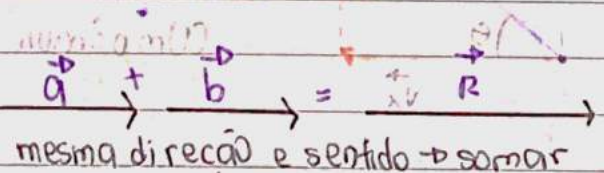 a + b = R
mesma direcão e sentido → somar